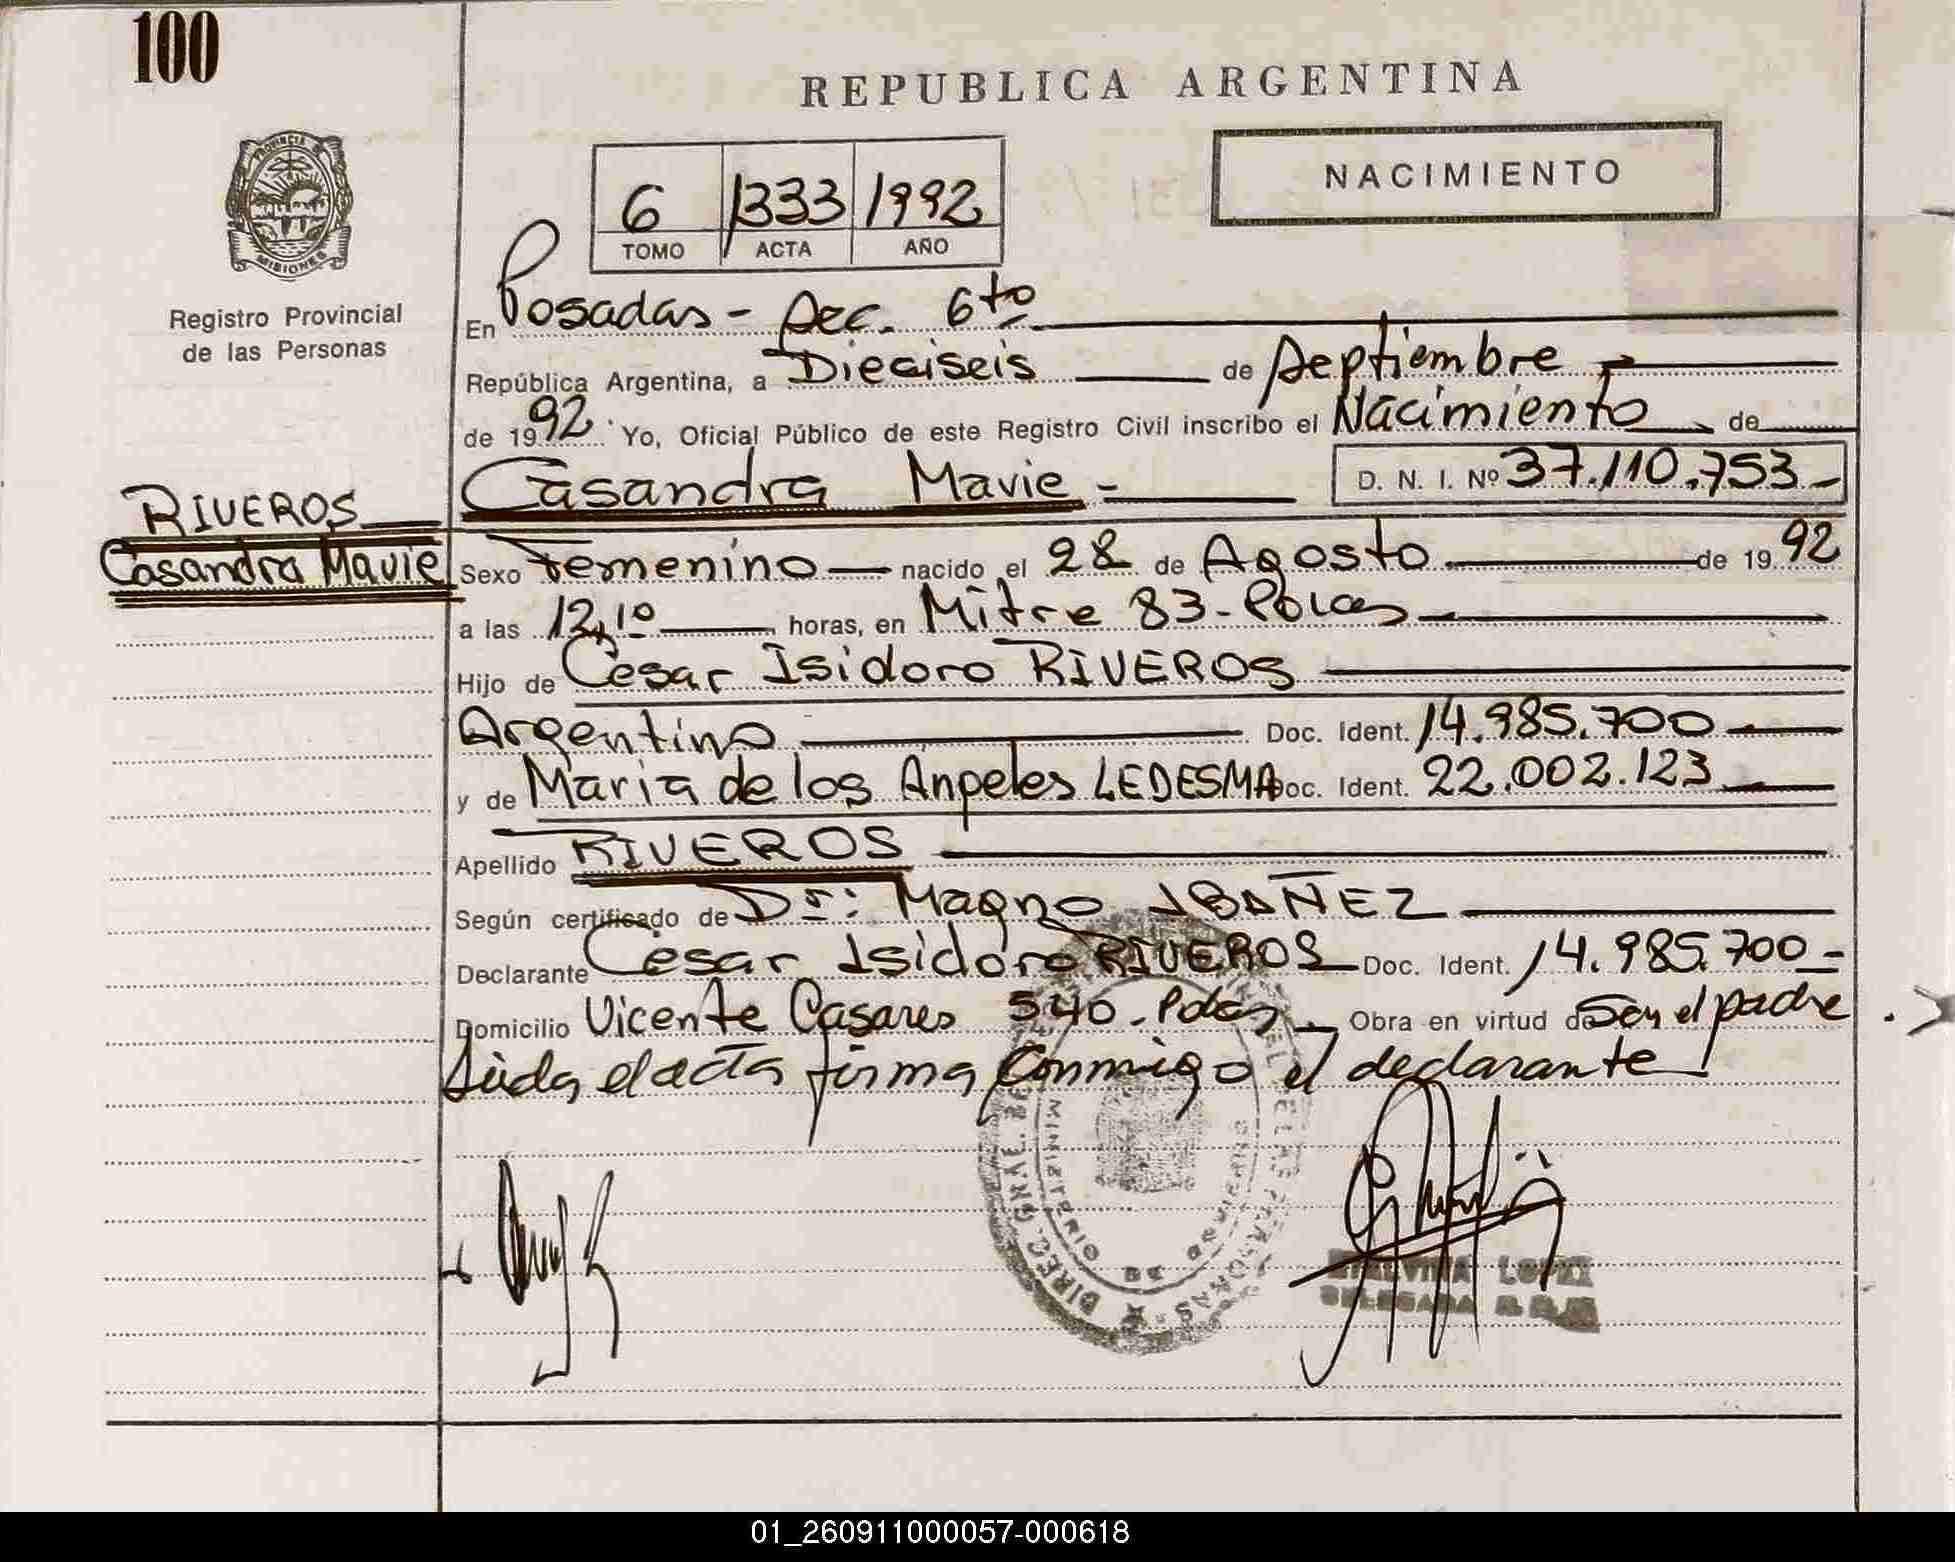 100
REPUBLICA ARGENTINA
NACIMIENTO
6 1333 1992
TOMO ACTA AÑO
PROVINCIA DE
MISIONES
Registro Provincial
de las Personas
En Posadas - Sec. 6to
República Argentina, a Dieciseis de Septiembre
de 1992 Yo, Oficial Público de este Registro Civil inscribo el Nacimiento de
Casandra Mavie - D. N. I. Nº 37.110.753-
RIVEROS
Casandra Mavie
Sexo Femenino nacido el 28 de Agosto de 1992
a las 12,10 horas, en Mitre 83 - Pdas
Hijo de Cesar Isidoro RIVEROS
Argentino Doc. Ident. 14.985.700
y de Maria de los Angeles LEDESMA Doc. Ident. 22.002.123
Apellido RIVEROS
Según certificado de Dr: Magno IBAÑEZ
Declarante Cesar Isidoro RIVEROS Doc. Ident. 14.985.700-
Domicilio Vicente Casares 540 - Pdas Obra en virtud de Ser el padre
Leida el acta firma conmigo el declarante
DIREC. GRAL. DEL REG. DE LAS PERSONAS
MINISTERIO DE GOBIERNO
LOPEZ
DELEGADA
01_260911000057-000618